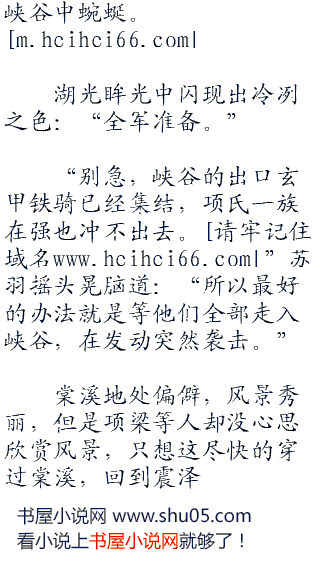 峡谷中蜿蜒。
[m.hcihci66.com|
湖光眸光中闪现出冷冽
之色：“全军准备。”
“别急，峡谷的出口玄
甲铁骑已经集结，项氏一族
在强也冲不出去。[请牢记住
域名www.hcihci66.com|”苏
羽摇头晃脑道：“所以最好
的办法就是等他们全部走入
峡谷，在发动突然袭击。”
棠溪地处偏僻，风景秀
丽，但是项梁等人却没心思
欣赏风景，只想这尽快的穿
过棠溪，回到震泽
书屋小说网 www.shu05.com
看小说上书屋小说网就够了！